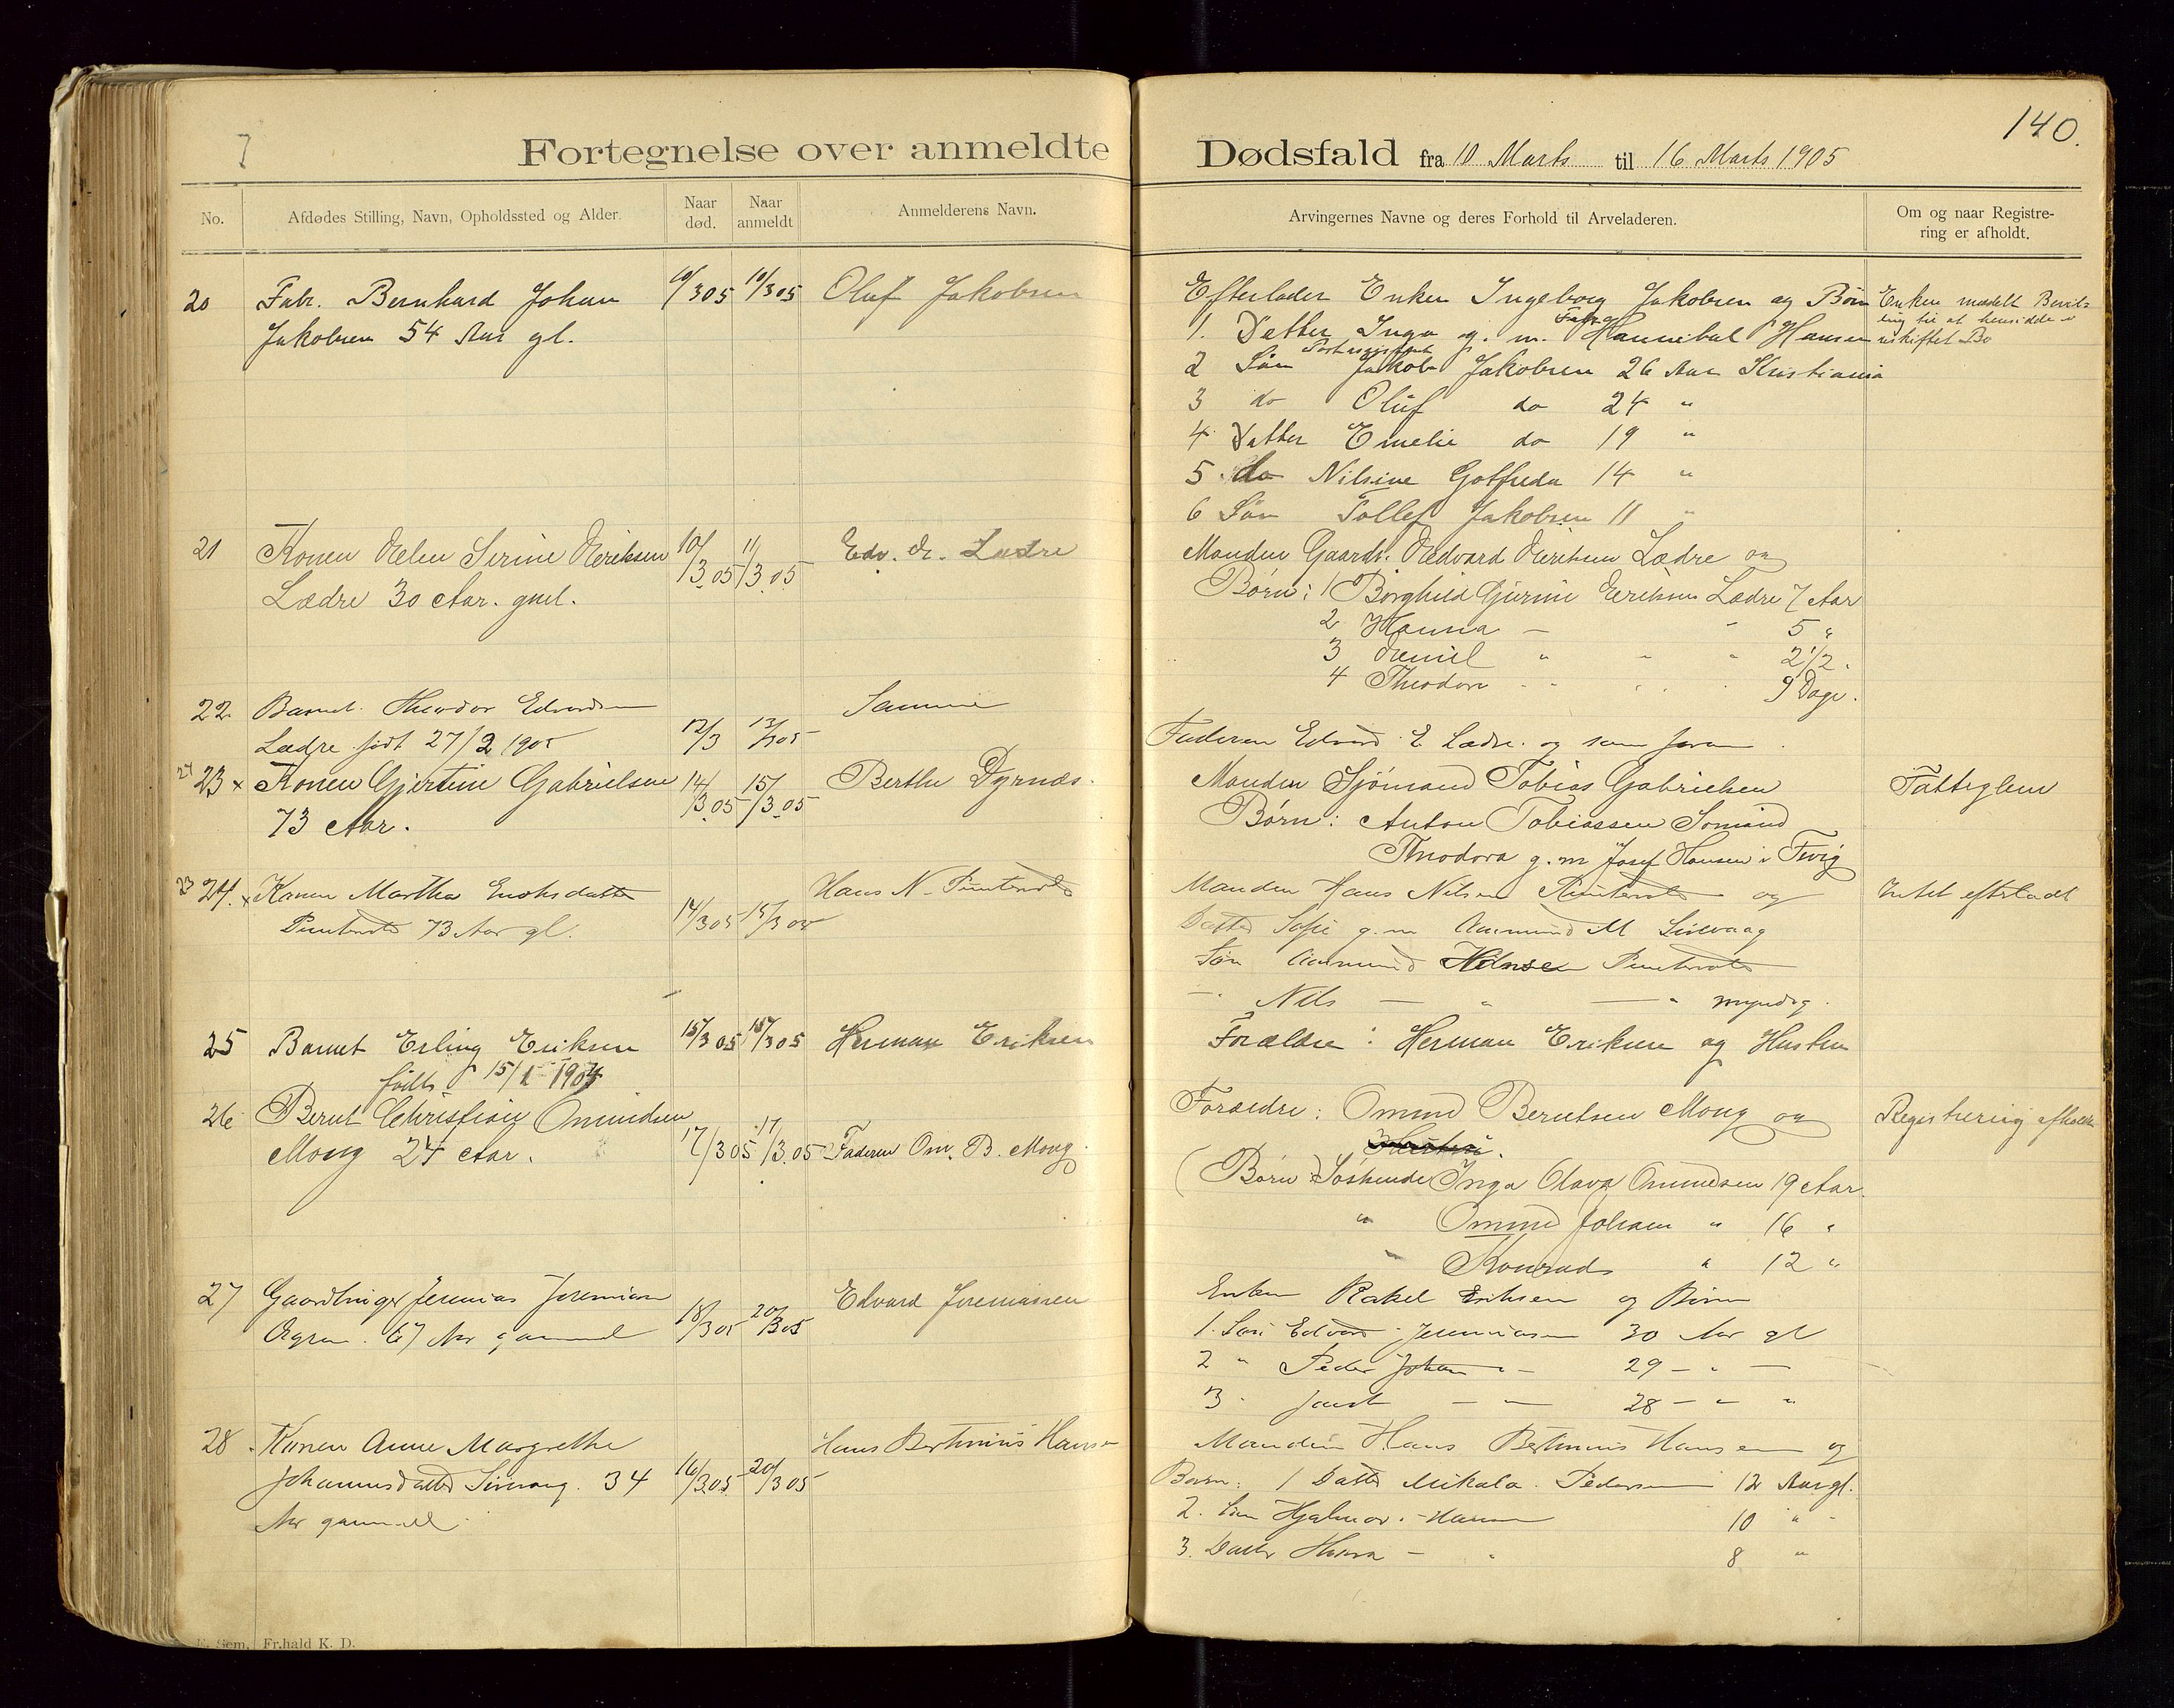 7
140.
Fortegnelse over anmeldte Dødsfald fra 10 Marts til 16 Marts 1905
No.
Afdødes Stilling, Navn, Opholdssted og Alder.
Naar død.
Naar anmeldt
Anmelderens Navn.
Arvingernes Navne og deres Forhold til Arveladeren.
Om og naar Registre-
ring er afholdt.
20 Fabr. Bernhard Johan 10/3 05 10/3 05 Oluf Jakobsen
Jakobsen 54 Aar gl.
Efterlader Enken Ingeborg Jakobsen og Børn
1. Datter Inga g. m. Hannibal Hansen
2 Søn Jakob Jakobsen 26 Aar Kristiania
3 do Oluf do 24 "
4 Datter Emelie do 19 "
5 do Nilsine Gotfreda 14 "
6 Søn Tollef Jakobsen 11 "
Enken meddelt Bevil-
ling til at hensidde i
uskiftet Bo
21 Konen Helen Serine Eeriksen 10/3 05 11/3 05 Edv. E. Lædre
Lædre 30 Aar. gml.
Manden Gaardb. Edvard Eeriksen Lædre og
Børn: 1 Borghild Gurine Eeriksen Lædre 7 Aar
2 Hanna - " 5 "
3 Daniel " " " 2 1/2 "
4 Theodor " " " 9 Dage.
22 Barnet Theodor Edvardsen 12/3 13/3 05 Samme
Lædre født 27/2 1905
Faderen Edvard E Lædre og som foran
24 23 x Konen Gjertine Gabrielsen 14/3 05 15/3 05 Berthe Dyrnæs.
73 Aar.
Manden Sjømand Tobias Gabrielsen
Børn: Anton Tobiassen Sømand
Theodora g. m Josef Hansen i Tvig
Fattiglem
23 24. x Konen Martha Enoksdatter 14/3 05 15/3 05 Hans N.
73 Aar gl.
Manden Hans Nilsen og
Datter Sofie g. m Aamund M Sirevaag
Søn Aamund Hansen
- " Nils - " - " myndig.
Intet efterladt
25 Barnet Erling Eriksen 15/3 05 15/3 05 Herman Eriksen
født 15/1 1904
Forældre: Herman Eriksen og Hustru
26 Bernt Christian Omundsen 17/3 05 17/3 05 Faderen Om. B. Mong
Mong 24 Aar.
Forældre: Ommund Berntsen Mong og
Hustru.
(Børn) Søskende Inga Olava Omundsen 19 Aar.
" Ommund Johan " 16 "
" Konrad " 12 "
Registrering afholdt
27 Gaardbruger Jeremias Jeremiasen 18/3 05 20/3 05 Edvard Jeremiassen
Ogna. 67 Aar gammel
Enken Rakel Eriksen og Børn
1. Søn Edvard Jeremiasen 30 Aar gl
2 " Peder Johan " - 29 - " -
3 " - - 28 - " "
28. Konen Anne Margrethe Hans Bertinius Hansen
Johannesdatter Sirevaag. 34 16/3 05 20/3 05
Aar gammel
Manden Hans Bertinius Hansen og
Børn: 1 Datter Mikala Pedersen 12 Aar gl.
2. Søn Hjalmar Hansen 10 " -
3. Datter Hanna - " 8 "
Sem, Fr.hald K. D.